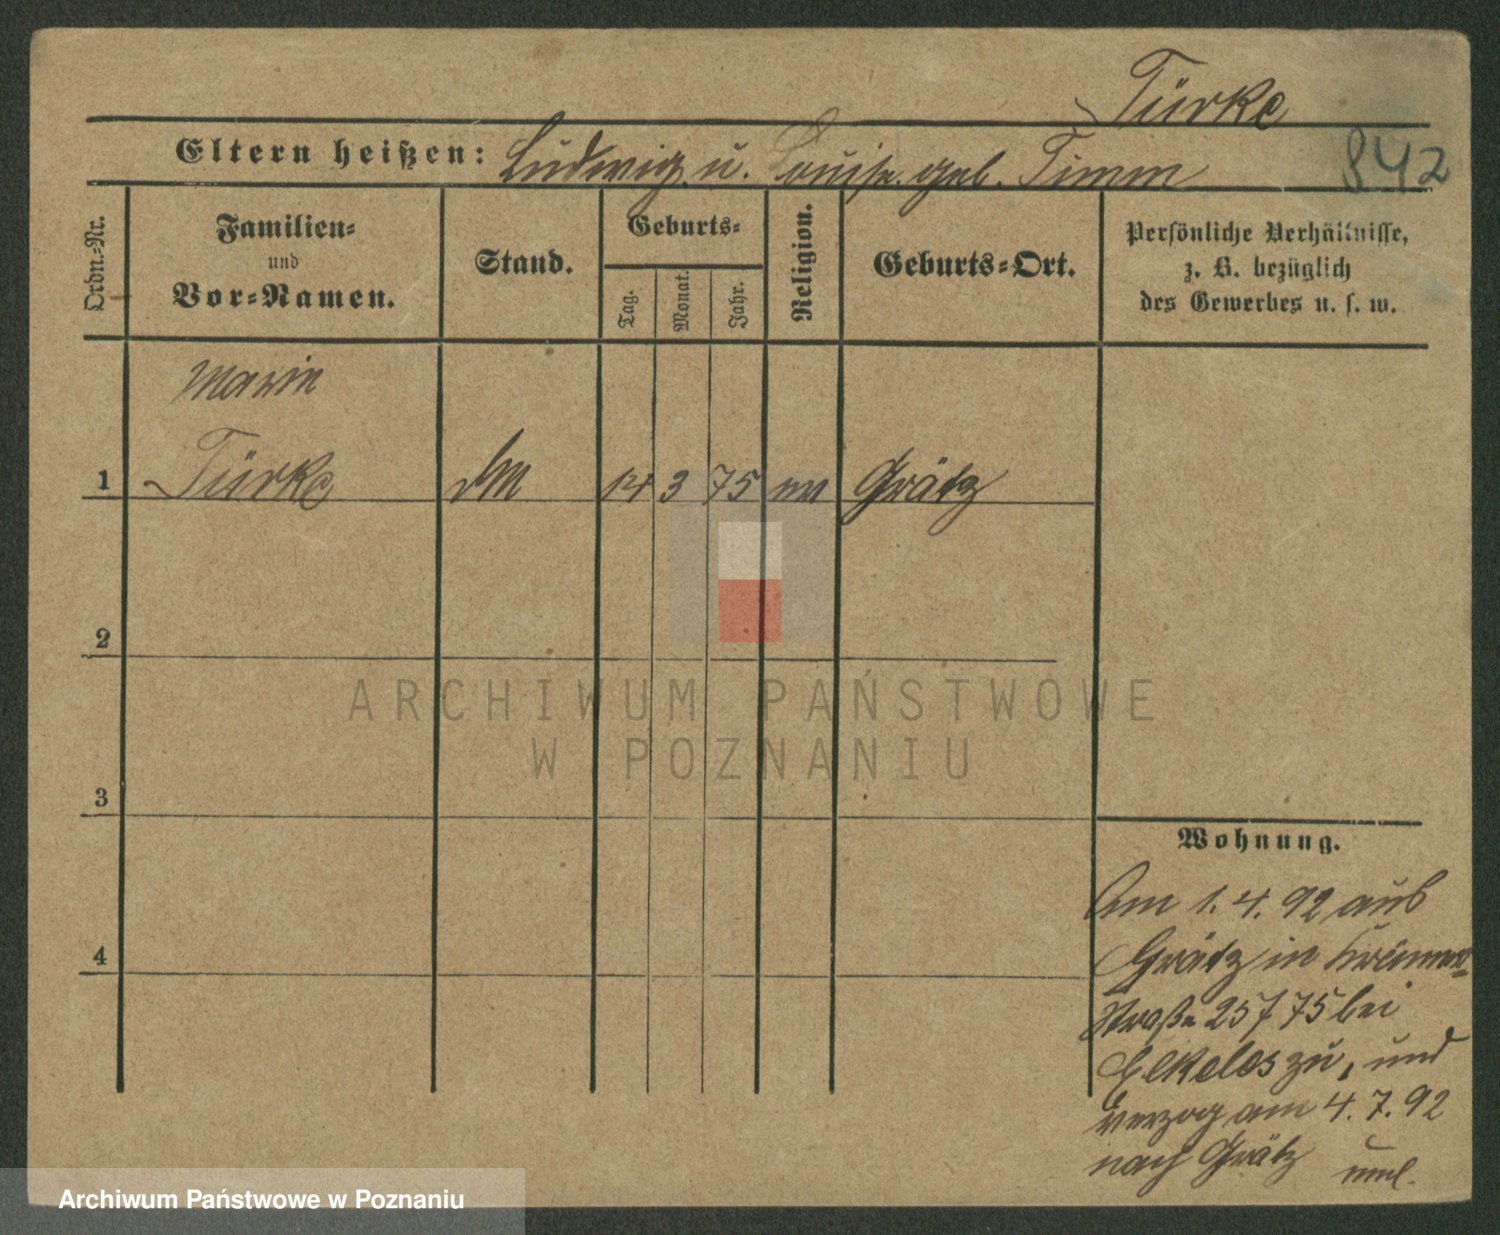 Türke
Eltern heißen: Ludwig u. Louise geb. Timm
842
Ordn.-Nr.
Familien-
und
Vor-Namen.
Stand.
Geburts-
Tag.
Monat.
Jahr.
Religion.
Geburts-Ort.
Persönliche Verhältnisse,
z. B. bezüglich
des Gewerbes u. s. w.
Marie
1 Türke 14 3 75 Grätz
2
3
4
Wohnung.
Am 1. 4. 92 aus
Grätz in
Straße 25/75 bei
zu, und
verzog am 4. 7. 92
nach Grätz
ARCHIWUM PAŃSTWOWE
W POZNANIU
Archiwum Państwowe w Poznaniu